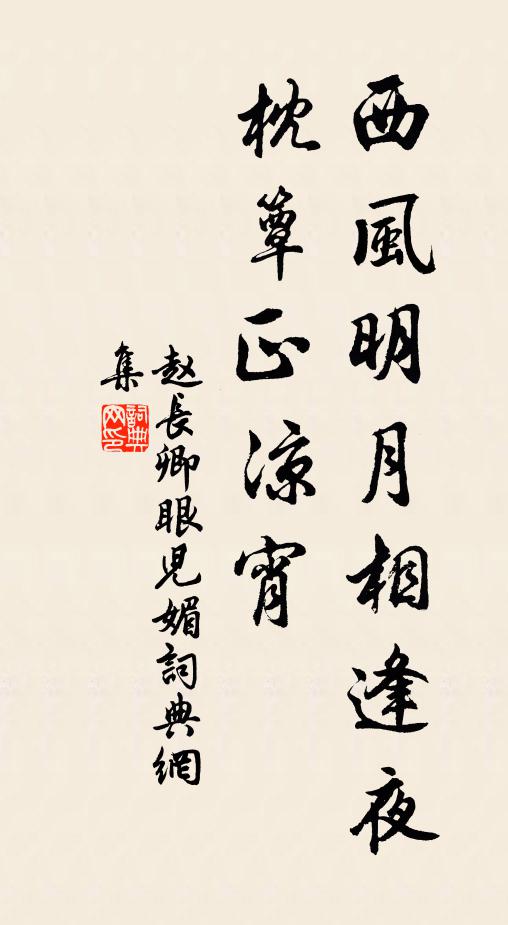 西風明月相逢夜
枕簟正涼宵
赵長卿眼兒媚詞典網
集
詞典
网印